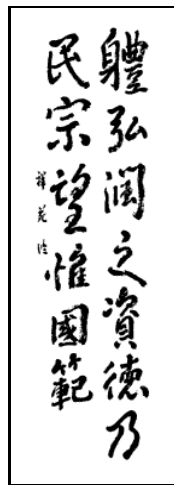 軆弘潤之資德乃
民宗望惟國範